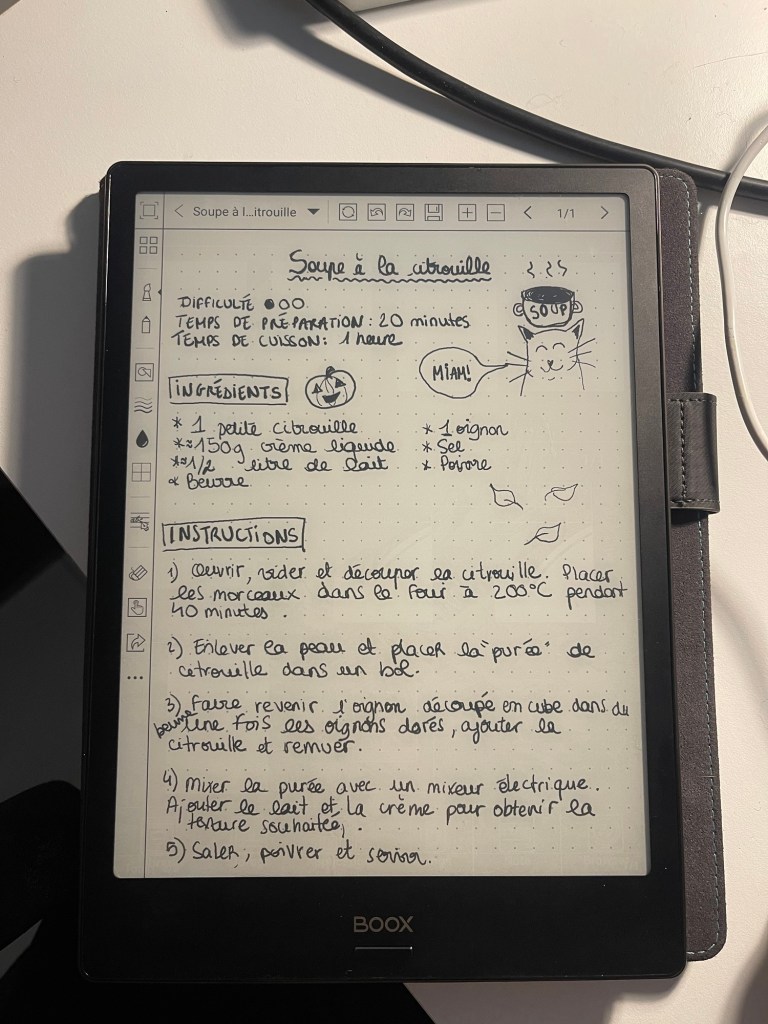 Soupe à l...itrouille
1/1
Soupe à la citrouille
SOUP
MIAM!
DIFFICULTÉ ●○○
TEMPS DE PRÉPARATION : 20 minutes
TEMPS DE CUISSON : 1 heure
INGRÉDIENTS
* 1 petite citrouille
* ≈ 150g crème liquide
* ≈ 1/2 litre de lait
* Beurre
* 1 oignon
* Sel
* Poivre
INSTRUCTIONS
1) Oeuvrir, vider et découper la citrouille. Placer
les morceaux dans le four à 200°C pendant
40 minutes.
2) Enlever la peau et placer la "purée" de
citrouille dans un bol.
3) Faire revenir l'oignon découpé en cube dans du
beurre. Une fois les oignons dorés, ajouter la
citrouille et remuer.
4) Mixer la purée avec un mixeur électrique.
Ajouter le lait et la crème pour obtenir la
texture souhaitée.
5) Saler, poivrer et servir.
BOOX